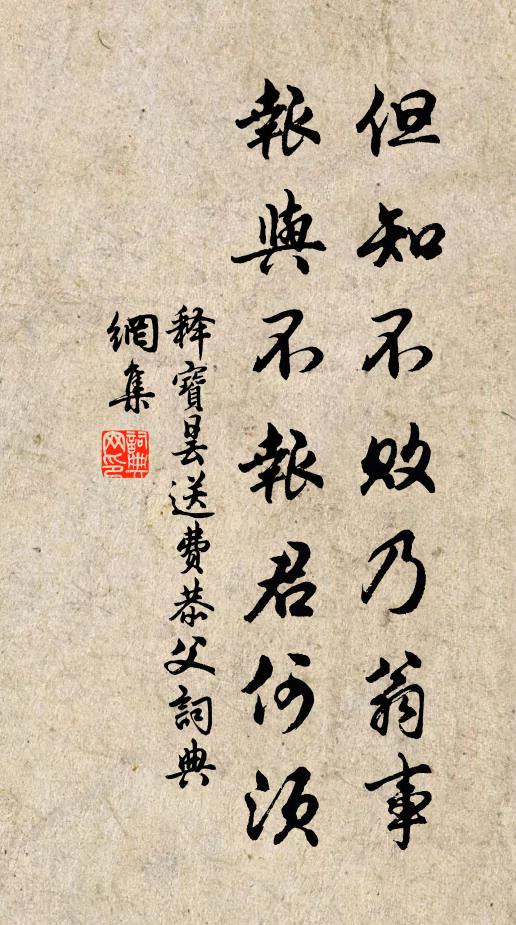 但知不敗乃翁事
報與不報君何須
释寶曇送費恭父詞典
網集
詞典網印